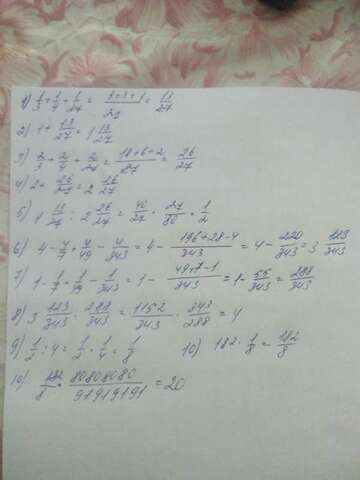 1) 1/3 + 1/9 + 1/27 = (9+3+1)/27 = 13/27
2) 1 + 13/27 = 1 13/27
3) 2/3 + 2/9 + 2/27 = (18+6+2)/27 = 26/27
4) 2 + 26/27 = 2 26/27
5) 1 13/27 : 2 26/27 = 40/27 · 27/80 = 1/2
6) 4 - 4/7 + 4/49 - 4/343 = 4 - (196+28-4)/343 = 4 - 220/343 = 3 123/343
7) 1 - 1/7 + 1/49 - 1/343 = 1 - (49+7-1)/343 = 1 - 55/343 = 288/343
8) 3 123/343 : 288/343 = 1152/343 · 343/288 = 4
9) 1/2 : 4 = 1/2 · 1/4 = 1/8 10) 182 · 1/8 = 182/8
10) 182/8 · 80808080/91919191 = 20